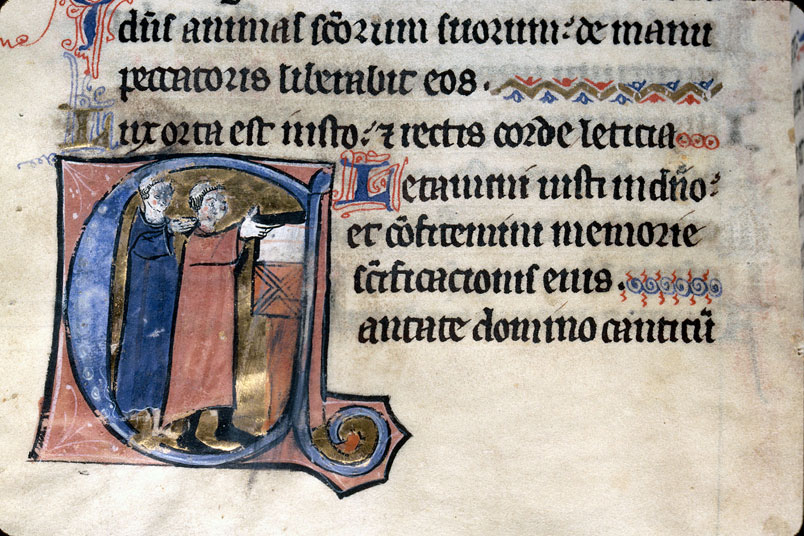 dn̄s animas sc̄orum suorum: de manu
peccatoris liberabit eos.
Lux orta est iusto: ⁊ rectis corde leticia
Letamini iusti in dn̄o:
et cōfitemini memorie
sc̄ificationis eius.
Cantate domino canticū